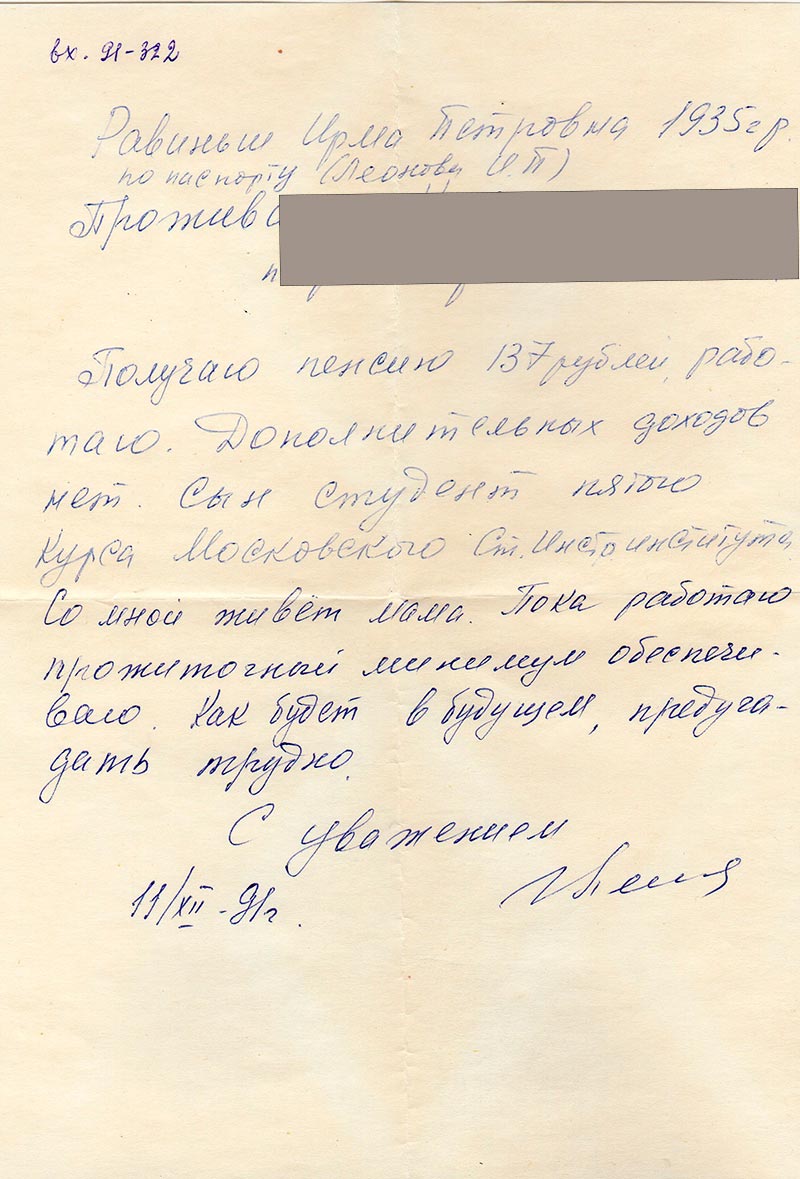 вх. 91-322
Равиньш Ирма Петровна 1935 г.р.
по паспорту (Леонова И.П)
Прожива
Получаю пенсию 137 рублей, рабо-
таю. Дополнительных доходов
нет. Сын студент пятого
курса Московского Ст. Инстоинститута
Со мной живёт мама. Пока работаю
прожиточный минимум обеспечи-
ваю. Как будет в будущем, предуга-
дать трудно.
С уважением
11/XII-91г.